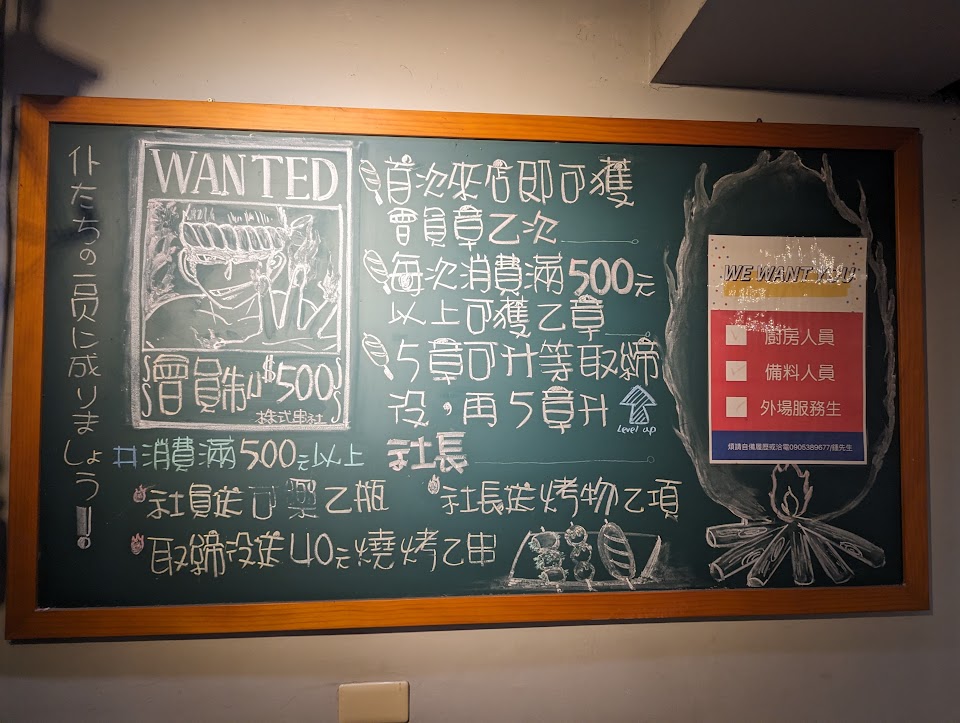 仆たちの一員に成りましょう!!
WANTED
會員制 $500
株式串社
首次來店即可獲
會員章乙次
每次消費滿500元
以上可獲乙章
5章可升等取締
役，再5章升
Level up
社長
#消費滿500元以上
社員送可樂乙瓶
社長送烤物乙項
取締役送40元燒烤乙串
WE WANT YOU
廚房人員
備料人員
外場服務生
煩請自備履歷或洽電0905389677/鍾先生